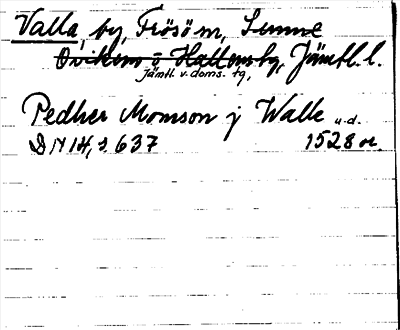 Valla, by, Frösö sn, Sunne
Ovikens o Hallens tg, Jämtl. l.
Jämtl. v. doms. tg,
Pedher Monson j Walle u.d.
DN 14, s 637 1528 or.